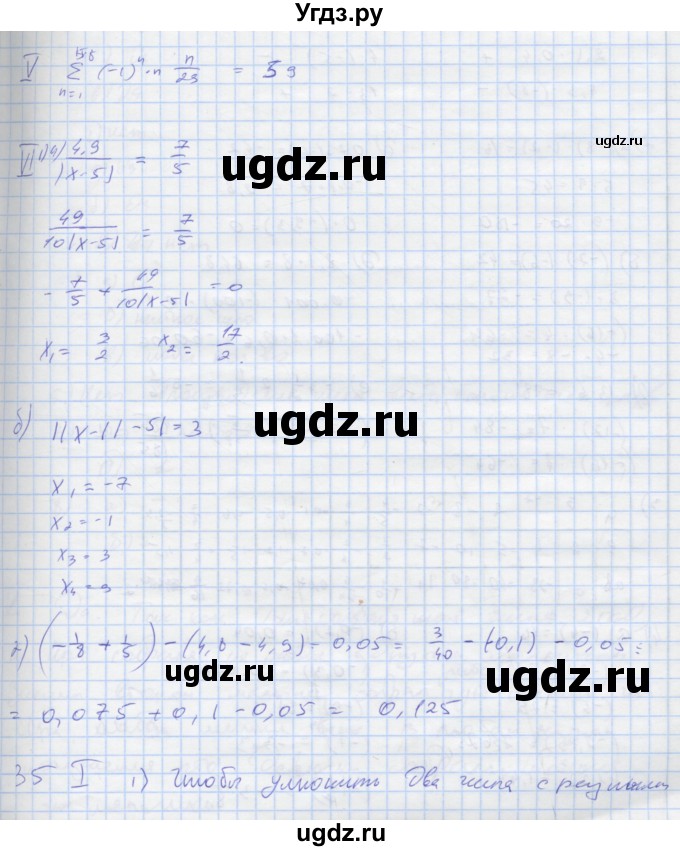 Угдз.ру
V 58 Σ n=1 (-1)ⁿ·n n/29 = 59
VI 1) a) 4,9/|x-5| = 7/5
ugdz.ru
49/10|x-5| = 7/5
- 7/5 + 49/10|x-5| = 0
x₁ = 3/2 x₂ = 17/2.
ugdz.ru
б) ||x-1|-5|=3
x₁ = -7
x₂ = -1
x₃ = 3
x₄ = 9
2) (-1/8 + 1/5) - (4,8 - 4,9) - 0,05 = 3/40 - (-0,1) - 0,05 =
ugdz.ru ugdz.ru
= 0,075 + 0,1 - 0,05 = 0,125
35 I 1) Чтобы умножить два числа с
ugdz.ru
ugdz.ru